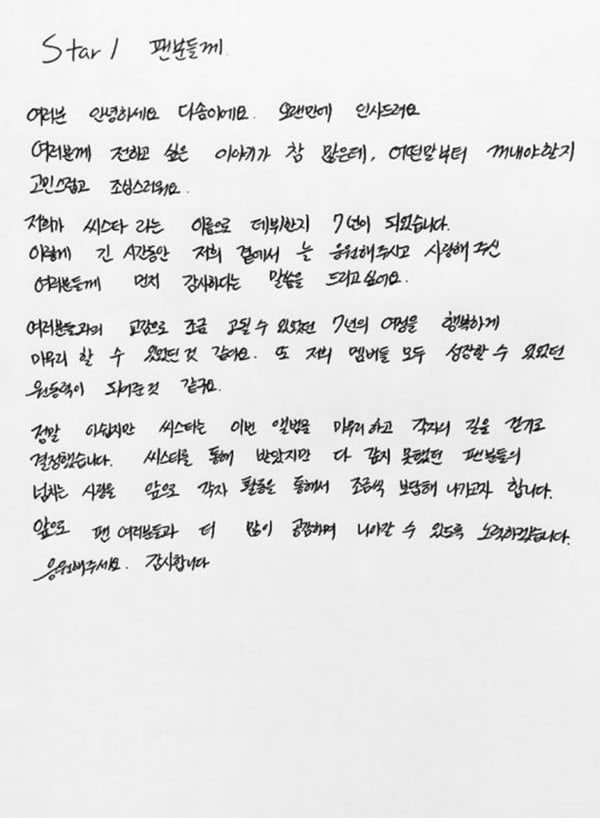 Star1 팬분들께
여러분 안녕하세요 다솜이에요. 오랜만에 인사드려요
여러분께 전하고 싶은 이야기가 참 많은데, 어떤말부터 꺼내야할지
고민스럽고 조심스러워요.
저희가 씨스타 라는 이름으로 데뷔한지 7년이 되었습니다.
이렇게 긴 시간동안 저희 곁에서 늘 응원해주시고 사랑해 주신
여러분들께 먼저 감사하다는 말씀을 드리고싶어요.
여러분들과의 교감으로 조금 고될 수 있었던 7년의 여정을 행복하게
마무리 할 수 있었던 것 같아요. 또 저희 멤버들 모두 성장할 수 있었던
원동력이 되어준것 같구요.
정말 아쉽지만 씨스타는 이번 앨범을 마무리하고 각자의 길을 걷기로
결정했습니다. 씨스타를 통해 받았지만 다 갚지 못했던 팬분들의
넘치는 사랑을 앞으로 각자 활동을 통해서 조금씩 보답해 나가고자 합니다.
앞으로 팬 여러분들과 더 많이 공감하며 나아갈 수 있도록 노력하겠습니다.
응원해주세요. 감사합니다